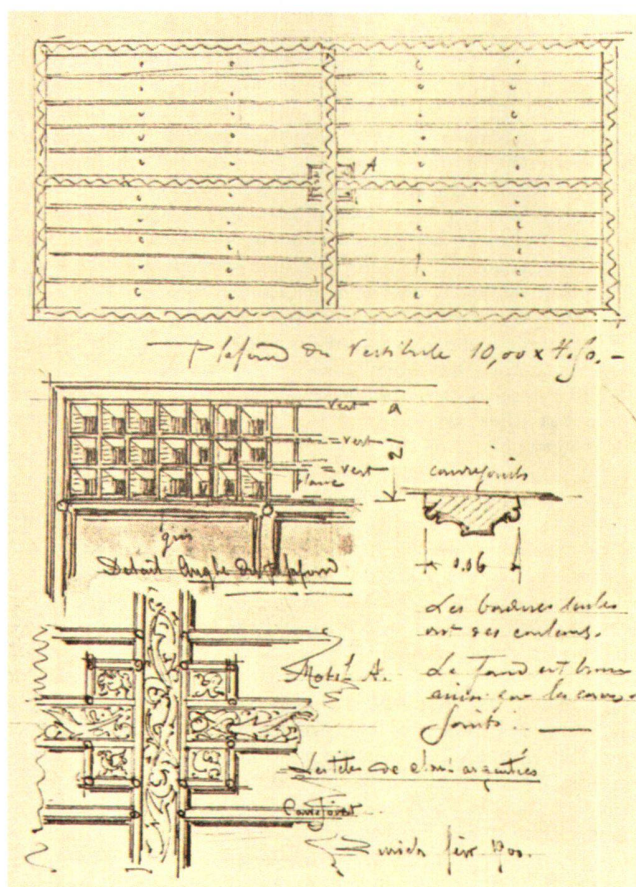 A
Plafond du Vestibule 10,00 x 4,50. -
vert a
= vert
= vert
blanc
21
gris
Detail Angle du plafond
couvrejoints
0.06
Les bordures seules
ont des couleurs.
Motif A.
Le fond est brun
ainsi que les couvre-
joints.
Les têtes de clous argentées
Couvrejoint
Zurich févr. 1900.